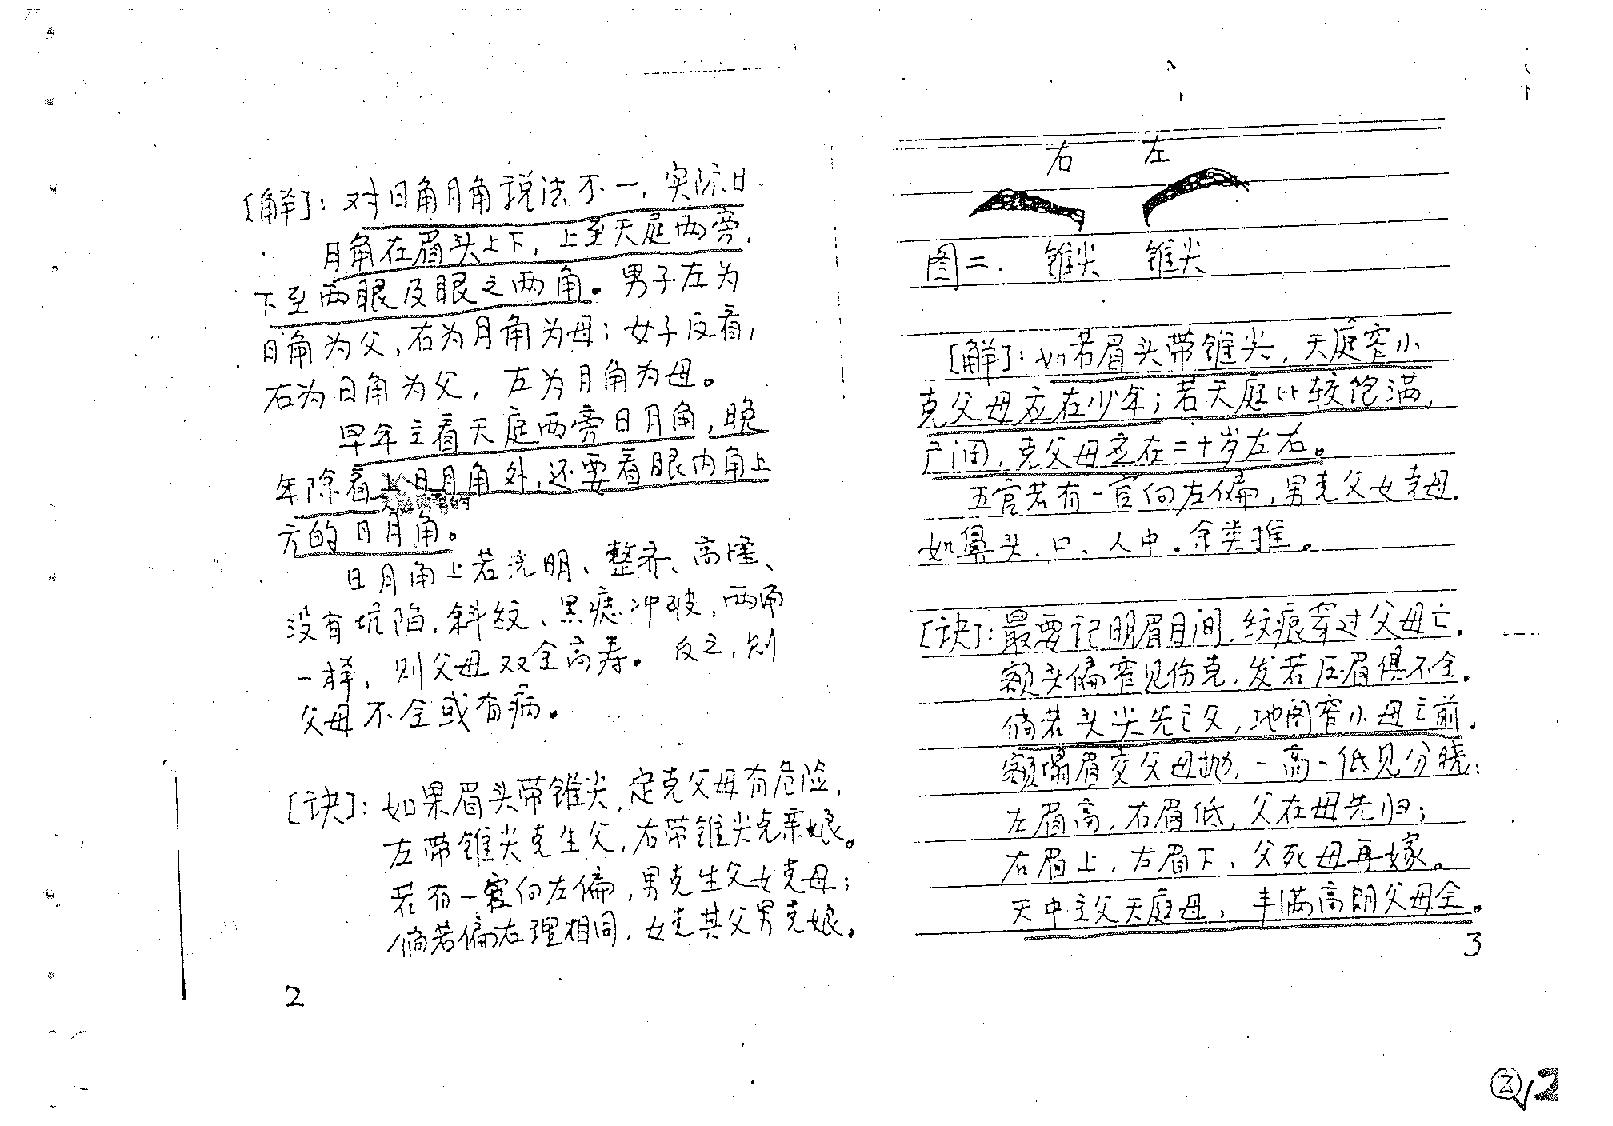 [解]：对日角月角说法不一，实际日
月角在眉头上下，上至天庭两旁，
下至两眼及眼之两角。男子左为
日角为父，右为月角为母；女子反看，
右为日角为父，左为月角为母。
早年主看天庭两旁日月角，晚
年除看上日月角外，还要看眼内角上
方的日月角。
日月角上若光明、整齐、高隆、
没有坑陷，斜纹、黑痣冲破，两角
一样，则父母双全高寿。反之，则
父母不全或有病。
[诀]：如果眉头带锥尖，定克父母有危险，
左带锥尖克生父，右带锥尖克亲娘。
若有一官向左偏，男克生父女克母；
倘若偏右理相同，女克其父男克娘。
2
右 左
图二. 锥尖 锥尖
[解]：如若眉头带锥尖，天庭窄小
克父母应在少年；若天庭比较饱满，
广阔，克父母应在二十岁左右。
五官若有一官向左偏，男克父女克母.
如鼻头、口、人中。余类推。
[诀]：最要记明眉目间，纹痕穿过父母亡.
额头偏窄见伤克，发若压眉俱不全.
倘若头尖先亡父，地阁窄小母亡前.
额塌眉交父母抛，一高一低见分晓：
左眉高，右眉低，父在母先归；
右眉上，左眉下，父死母再嫁。
天中主父天庭母，丰满高明父母全。
3
② 12